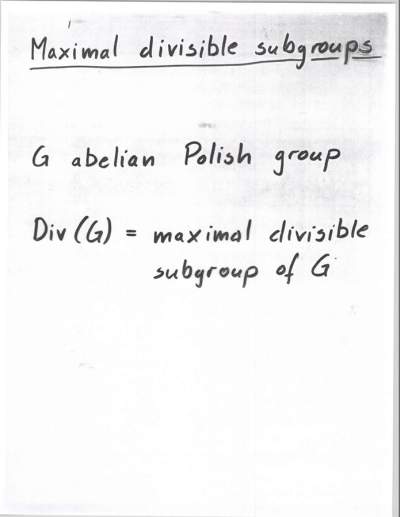 Maximal divisible subgroups
G abelian Polish group
Div (G) = maximal divisible
subgroup of G